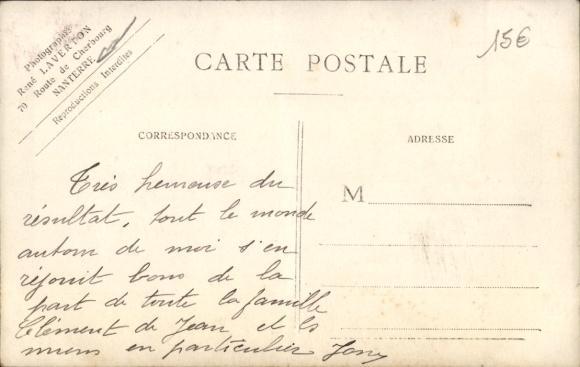 Photographie
René LAVERTON
70 Route de Cherbourg
NANTERRE
Reproductions Interdites
15€
CARTE POSTALE
CORRESPONDANCE
ADRESSE
M
Très heureuse du
résultat, tout le monde
autour de moi s'en
réjouit bons de la
part de toute la famille
Clément de Jean et les
miens en particulier